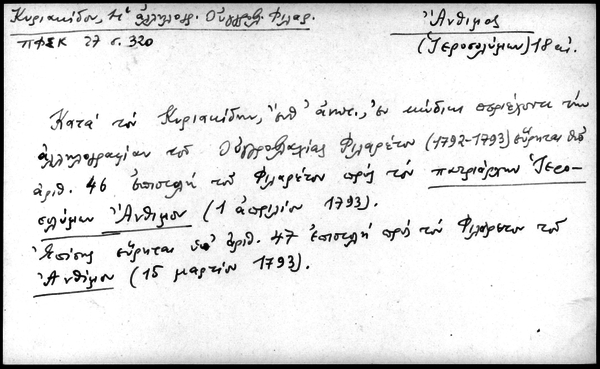 Κυριακίδου, Ἡ ἀλληλογρ. Οὑγγροβλ. Φιλαρ.
ΠΦΣΚ 27 σ. 320
Ἄνθιμος
(Ἱεροσολύμων) 18 αἰ.
Κατὰ τὸν Κυριακίδην, ἔνθ' ἀνωτ., ἐν κώδικι περιέχοντι τὴν
ἀλληλογραφίαν τοῦ Οὑγγροβλαχίας Φιλαρέτου (1792-1793) εὕρηται ὑπ'
ἀριθ. 46 ἐπιστολὴ τοῦ Φιλαρέτου πρὸς τὸν πατριάρχην Ἱερο-
σολύμων Ἄνθιμον (1 ἀπριλίου 1793).
Ἐπίσης εὕρηται ὑπ' ἀριθ. 47 ἐπιστολὴ πρὸς τὸν Φιλάρετον τοῦ
Ἀνθίμου (15 μαρτίου 1793).